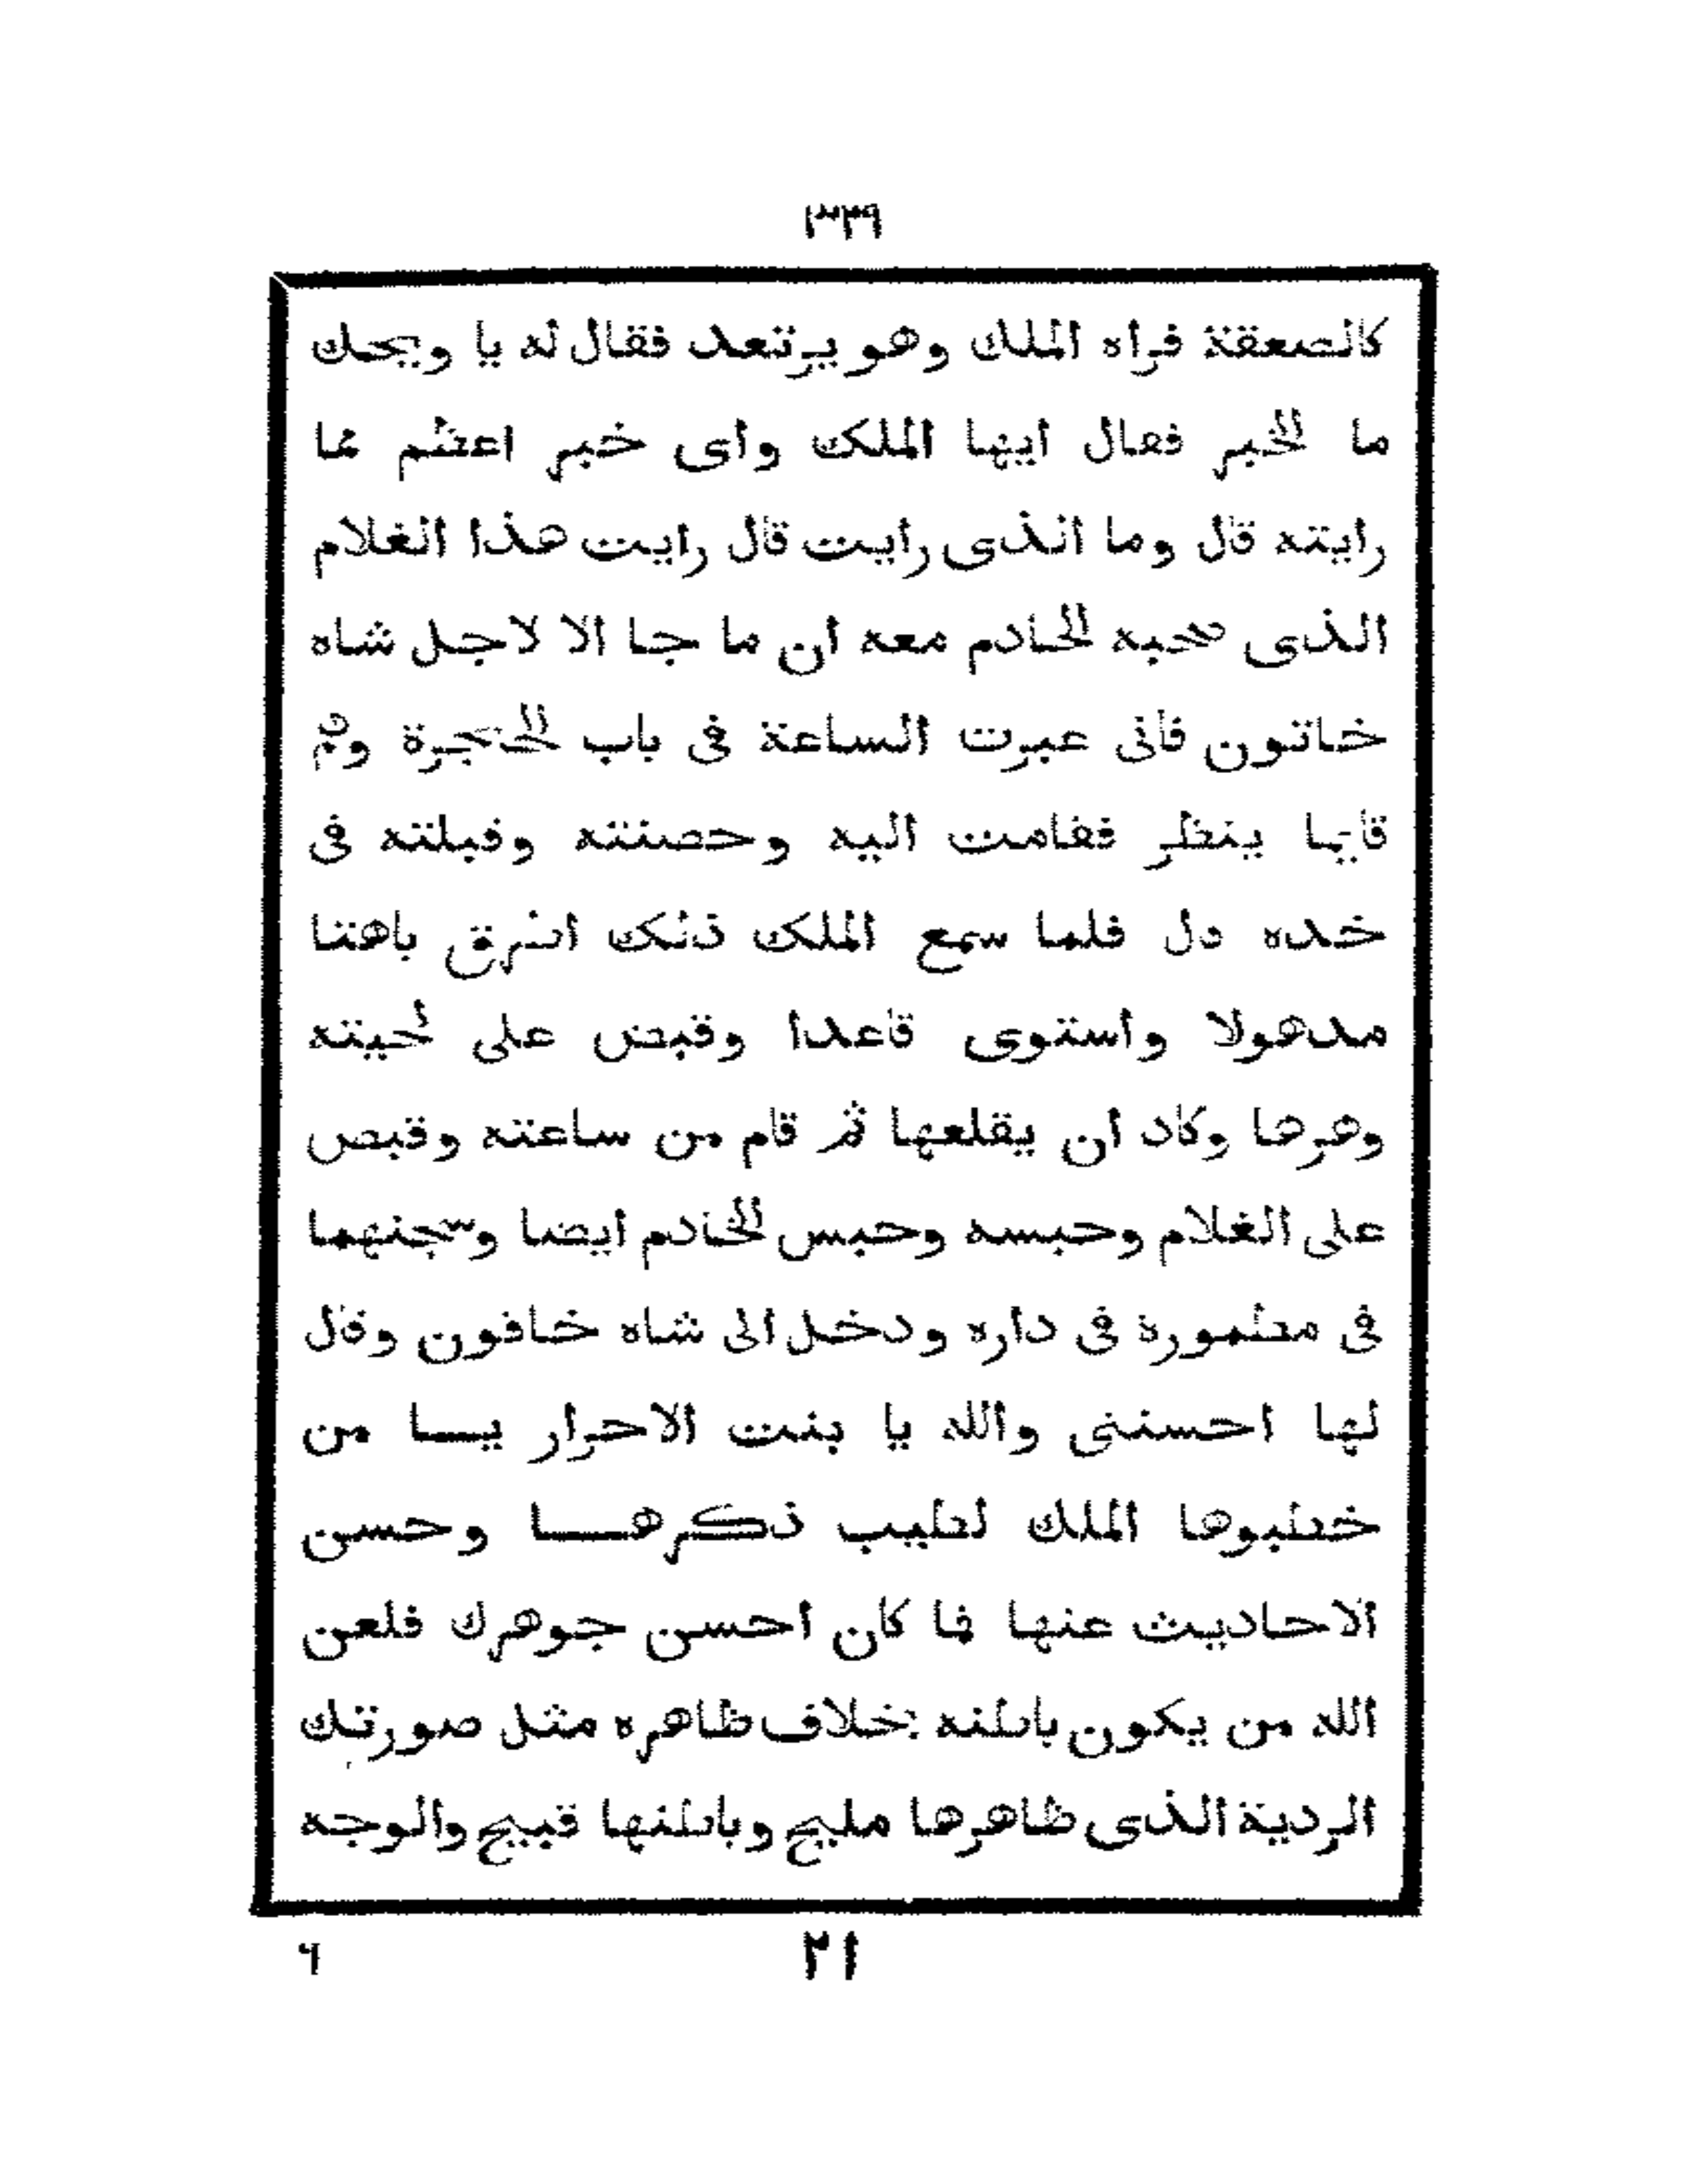 ٣٣٩
كالصعقة فراه الملك وهو يرتعد فقال له يا ويحك
ما الخبر فقال ايها الملك واى خبر اعظم مما
رايته قال وما الذى رايت قال رايت هذا الغلام
الذى صحبه الخادم معه ان ما جا الا لاجل شاه
خاتون فانى عبرت الساعة فى باب الحجرة وهم
قايما ينظر فقامت اليه وحصنته وقبلته فى
خده قال فلما سمع الملك ذلك اشرق باهتا
مدهولا واستوى قاعدا وقبض على لحيته
وهرها وكاد ان يقلعها ثم قام من ساعته وقبص
على الغلام وحبسه وحبس الخادم ايضا وسجنهما
فى مطمورة فى داره ودخل الى شاه خافون وقال
لها احسنتى والله يا بنت الاحرار يسا من
خطبوها الملك لطيب ذكرها وحسن
الاحاديث عنها فما كان احسن جوهرك فلعن
الله من يكون باطنه بخلاف ظاهره مثل صورتك
الردية الذى ظاهرها مليح وباطنها قبيح والوجه
٢١
٦